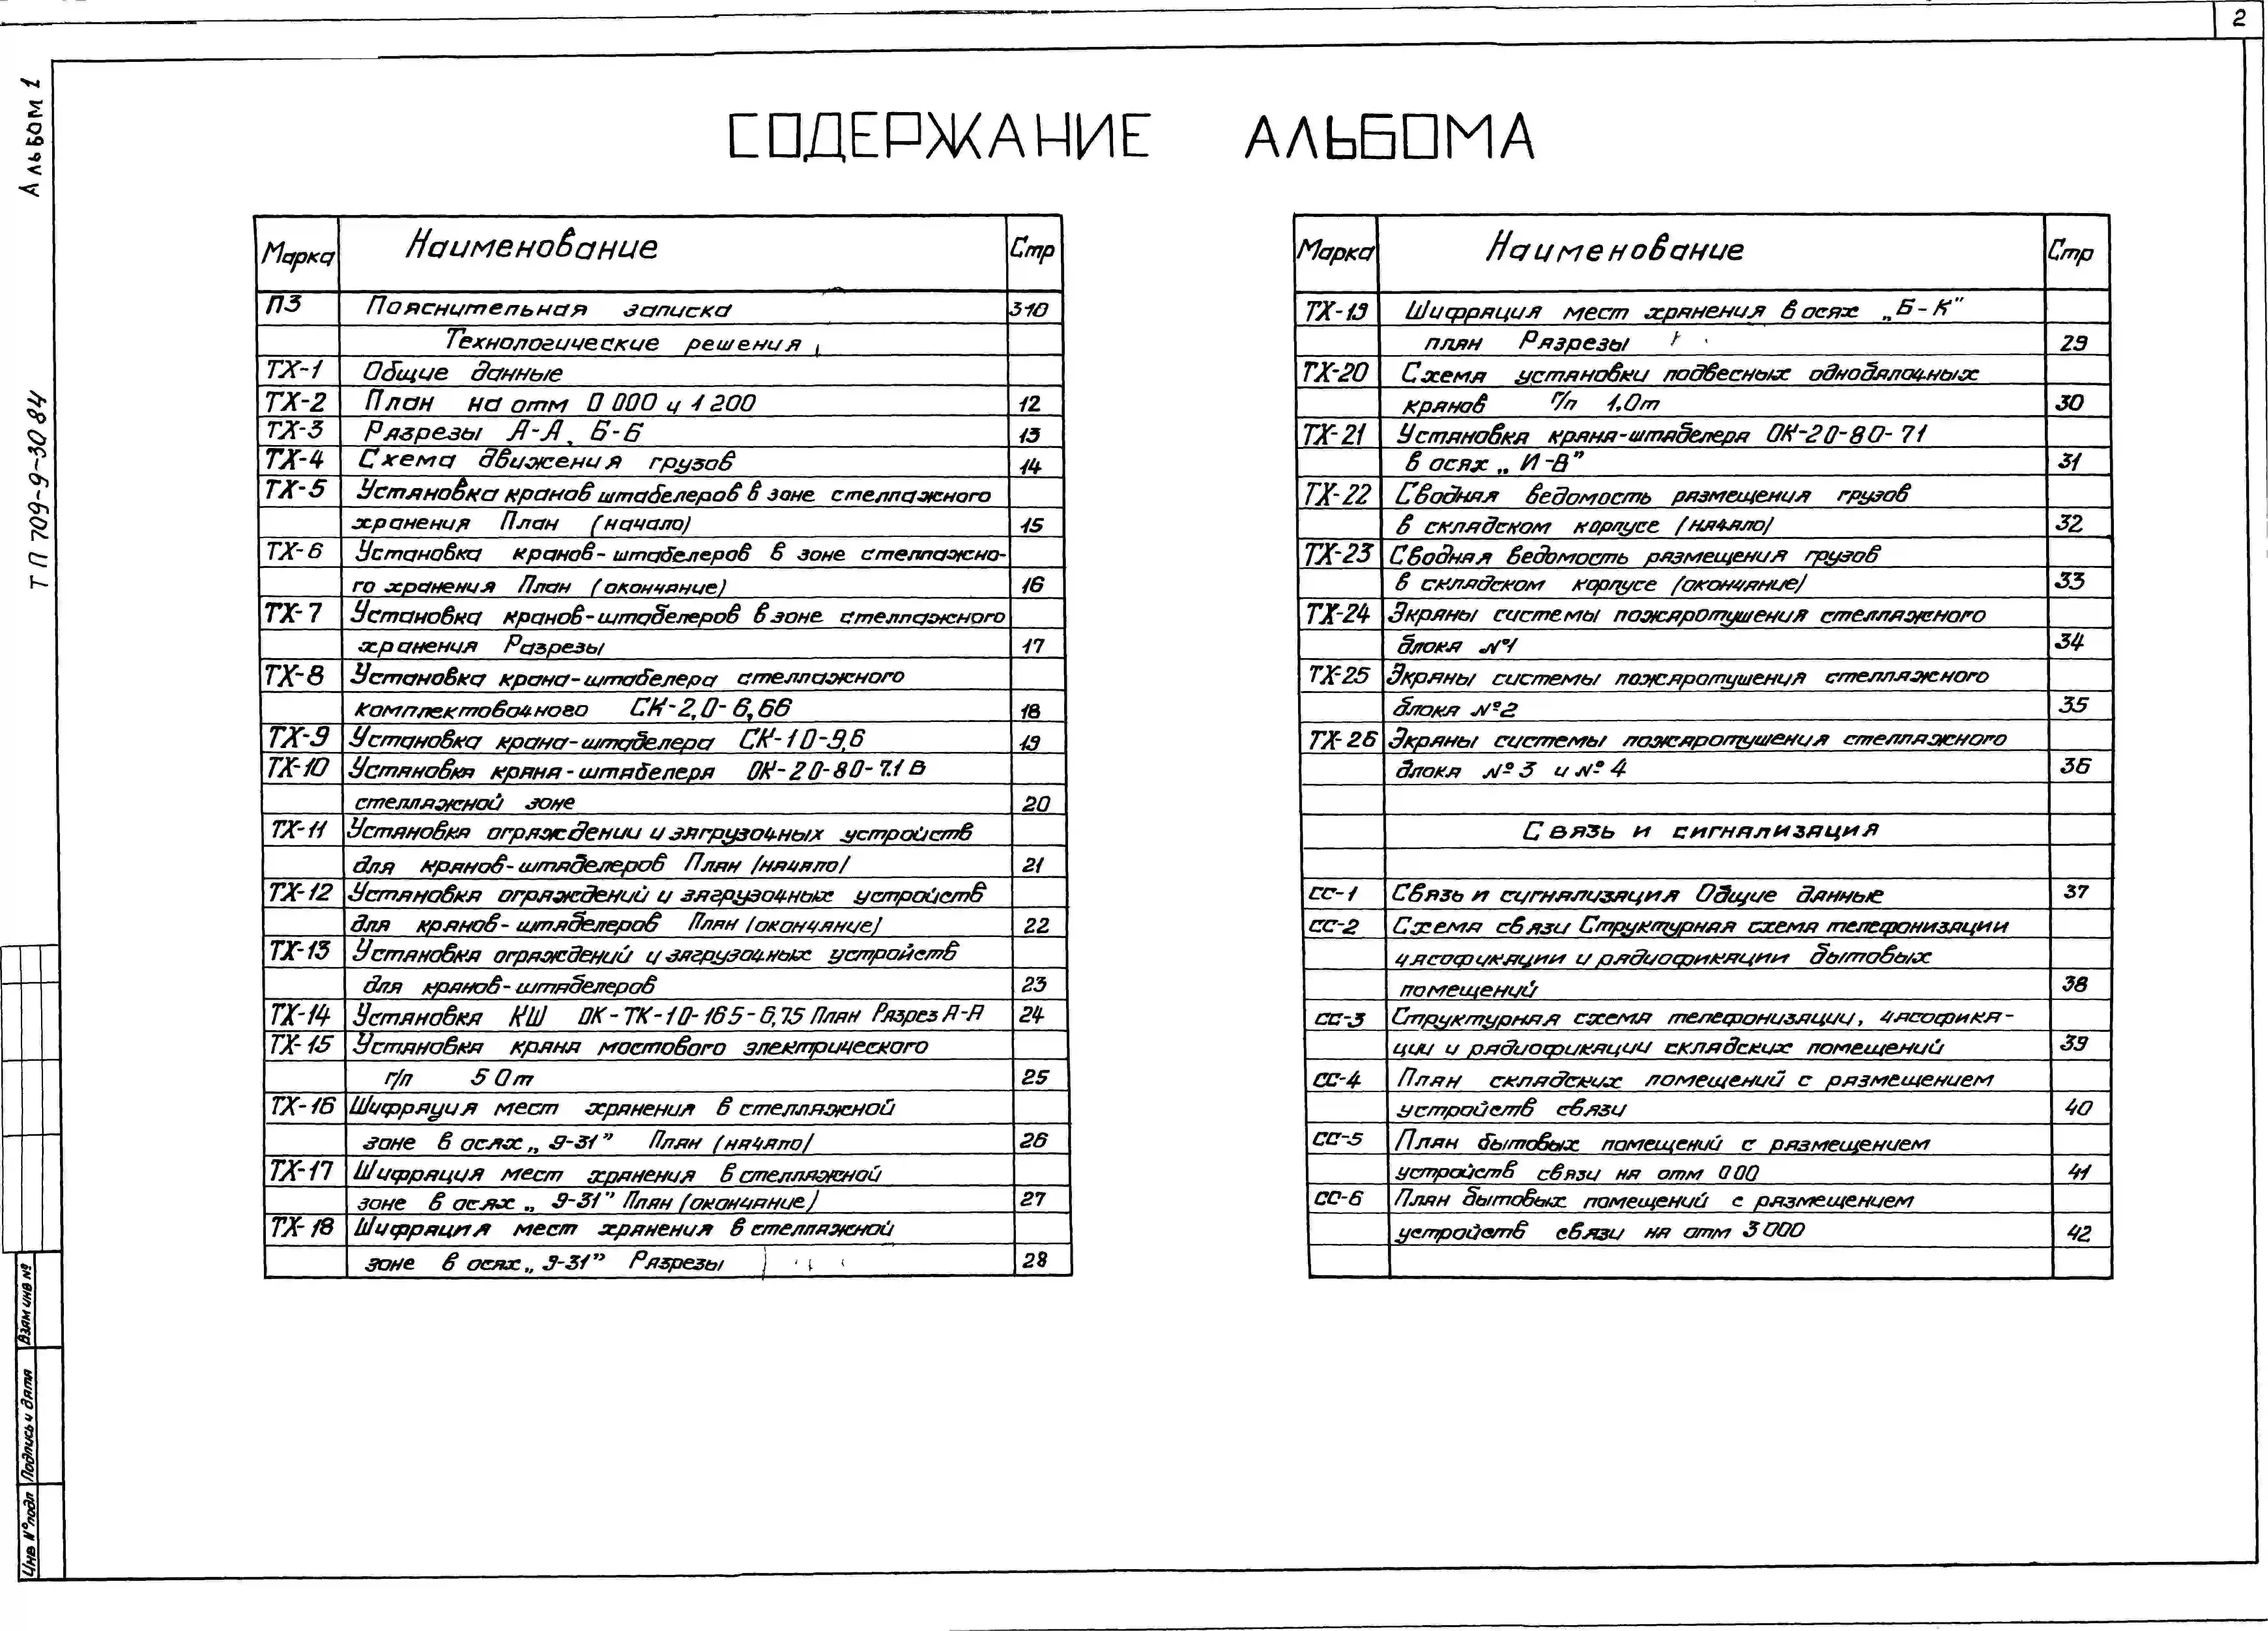 2
Альбом 1
ТП 709-9-30 84
СОДЕРЖАНИЕ АЛЬБОМА
Марка Наименование Стр
ПЗ Пояснительная записка 3-10
Технологические решения
ТХ-1 Общие данные
ТХ-2 План на отм 0 000 и 1 200 12
ТХ-3 Разрезы А-А, Б-Б 13
ТХ-4 Схема движения грузов 14
ТХ-5 Установка кранов штабелеров в зоне стеллажного
хранения План (начало) 15
ТХ-6 Установка кранов-штабелеров в зоне стеллажно-
го хранения План (окончание) 16
ТХ-7 Установка кранов-штабелеров в зоне стеллажного
хранения Разрезы 17
ТХ-8 Установка крана-штабелера стеллажного
комплектовочного СК-2,0-6,66 18
ТХ-9 Установка крана-штабелера СК-10-9,6 19
ТХ-10 Установка крана-штабелера ОК-20-80-7.1 в
стеллажной зоне 20
ТХ-11 Установка ограждении и загрузочных устройств
для кранов-штабелеров План (начало) 21
ТХ-12 Установка ограждений и загрузочных устройств
для кранов-штабелеров План (окончание) 22
ТХ-13 Установка ограждений и загрузочных устройств
для кранов-штабелеров 23
ТХ-14 Установка КШ ОК-ТК-10-165-6,75 План Разрез А-А 24
ТХ-15 Установка крана мостового электрического
г/п 5 0т 25
ТХ-16 Шифрация мест хранения в стеллажной
зоне в осях „9-31" План (начало) 26
ТХ-17 Шифрация мест хранения в стеллажной
зоне в осях „9-31" План (окончание) 27
ТХ-18 Шифрация мест хранения в стеллажной
зоне в осях „9-31" Разрезы 28
Марка Наименование Стр
ТХ-19 Шифрация мест хранения в осях „Б-К"
план Разрезы 29
ТХ-20 Схема установки подвесных однобалочных
кранов Г/п 1,0т 30
ТХ-21 Установка крана-штабелера ОК-20-80-71
в осях „И-В" 31
ТХ-22 Сводная ведомость размещения грузов
в складском корпусе (начало) 32
ТХ-23 Сводная ведомость размещения грузов
в складском корпусе (окончание) 33
ТХ-24 Экраны системы пожаротушения стеллажного
блока №1 34
ТХ-25 Экраны системы пожаротушения стеллажного
блока №2 35
ТХ-26 Экраны системы пожаротушения стеллажного
блока №3 и №4 36
Связь и сигнализация
СС-1 Связь и сигнализация Общие данные 37
СС-2 Схема связи Структурная схема телефонизации
часофикации и радиофикации бытовых
помещений 38
СС-3 Структурная схема телефонизации, часофика-
ции и радиофикации складских помещений 39
СС-4 План складских помещений с размещением
устройств связи 40
СС-5 План бытовых помещений с размещением
устройств связи на отм 0 00 41
СС-6 План бытовых помещений с размещением
устройств связи на отм 3 000 42
Взам инв №
Подпись и дата
Инв №подл